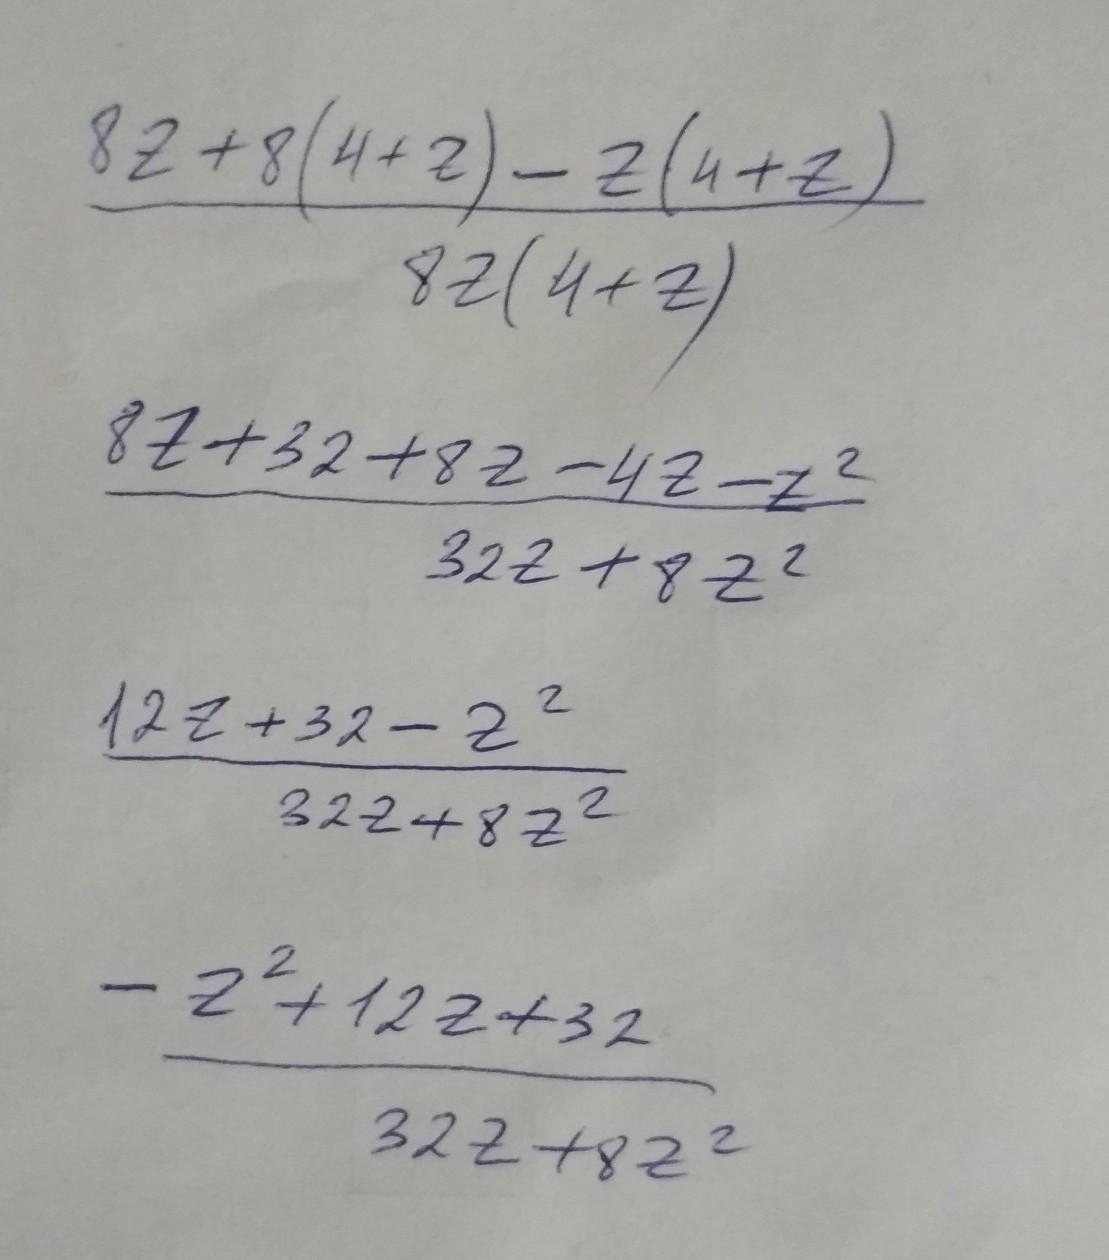 8z+8(4+z)-z(4+z)
8z(4+z)
8z+32+8z-4z-z²
32z+8z²
12z+32-z²
32z+8z²
-z²+12z+32
32z+8z²